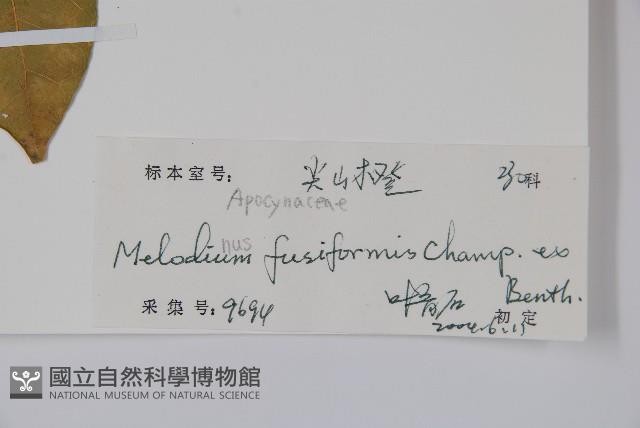 标本室号: 尖山橙 科
Apocynaceae
nus
Melodium fusiformis Champ. ex
Benth.
采集号: 9694
2004.6.15 初定
國立自然科學博物館
NATIONAL MUSEUM OF NATURAL SCIENCE